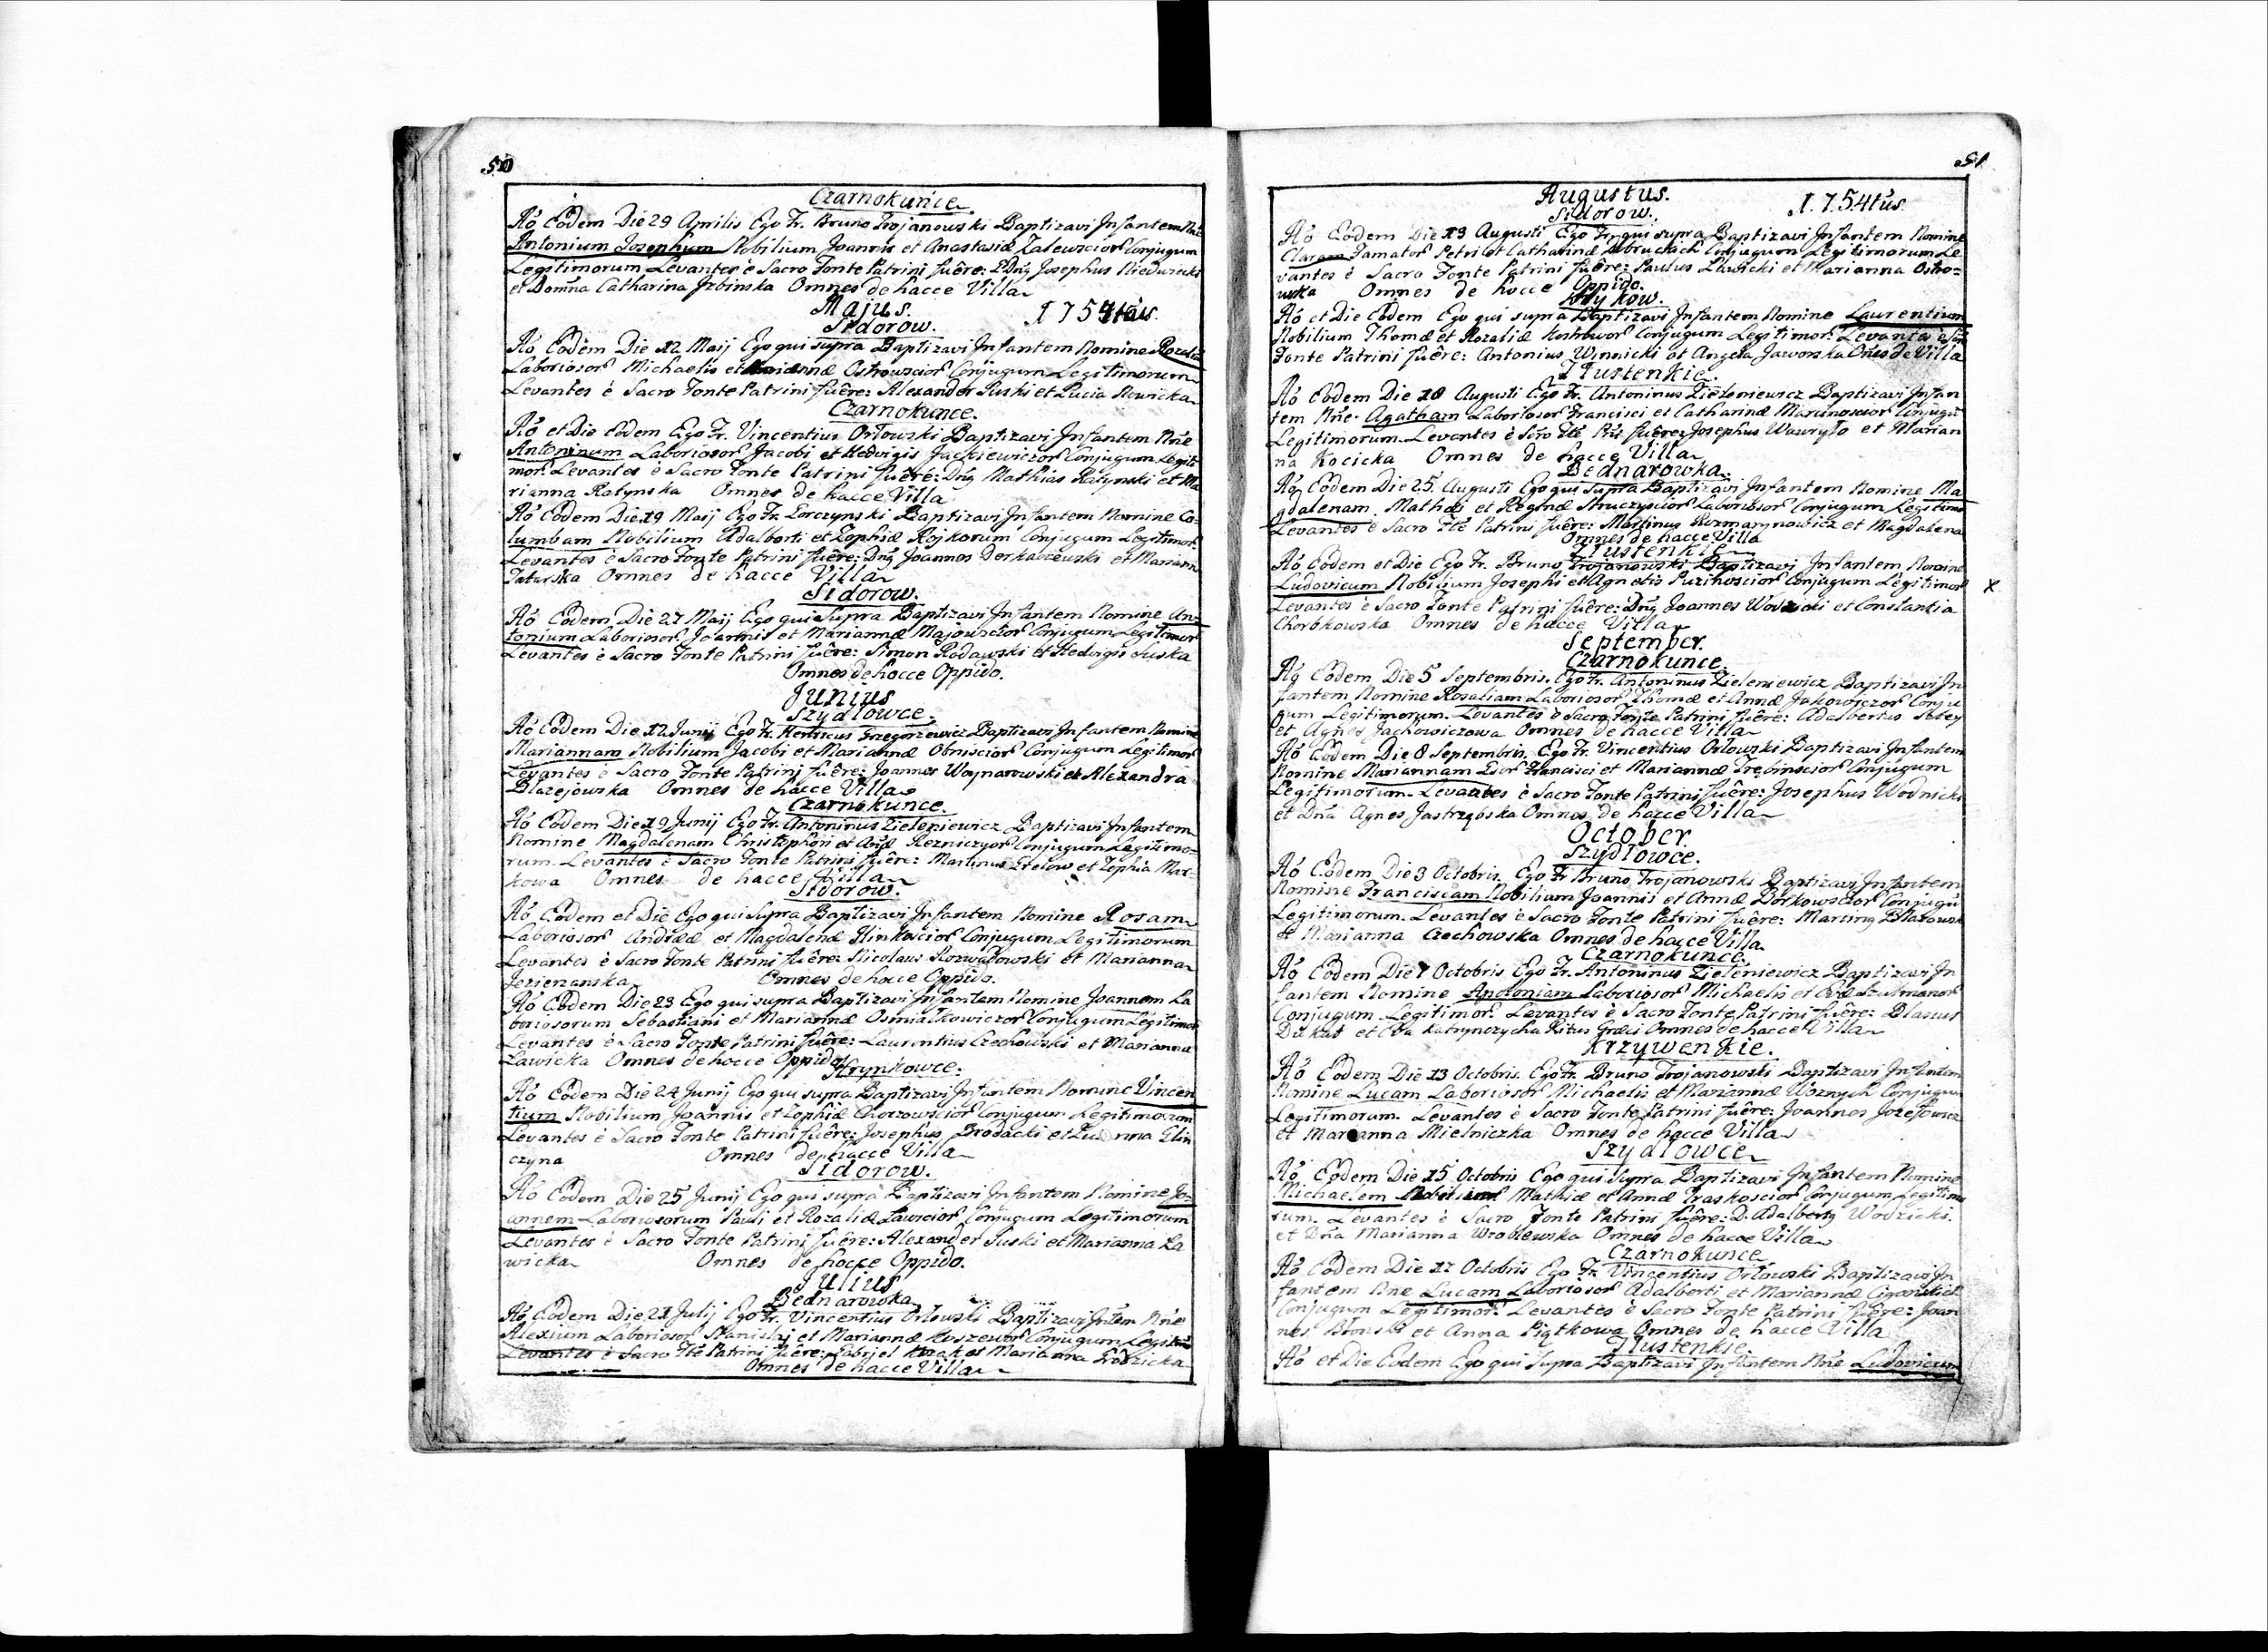 50
Czarnokunce
Aó Eodem Die 29 Aprilis Ego Fr. Bruno Trojanowski Baptizavi Infantem
Antonium Josephum Nobilium Joannis et Anastasiæ Zalewscior Conjugum
Legitimorum Levantes è Sacro Fonte Patrini fuêre: Josephus
et Domina Catharina Omnes de hacce Villa
Majus. 1754tus
Sidorow.
Aó Eodem Die 12 Maij Ego qui supra Baptizavi Infantem Nomine
Laboriosor Michaelis et Ostrowscior Conjugum Legitimorum
Levantes è Sacro Fonte Patrini fuêre: Alexander Suski et Lucia Nowicka
Czarnokunce.
Aó et Die Eodem Ego Fr. Vincentius Orłowski Baptizavi Infantem Nñe
Antoninum Laboriosor Jacobi et Hedvigis Jackiewiczor Conjugum Legiti
mor Levantes è Sacro Fonte Patrini fuêre: Dnus Mathias Ratynski et Ma
rianna Ratynska Omnes de hacce Villa
Aó Eodem Die 19 Maij Ego Fr. Lorczynski Baptizavi Infantem Nomine Co-
lumbam Nobilium Adalberti et Zophiæ Rojkorum Conjugum Legitimor
Levantes è Sacro Fonte Patrini fuêre: Joannes et Mariann
Tatarska Omnes de hacce Villa
Sidorow.
Aó Eodem Die 27 Maij Ego qui Supra Baptizavi Infantem Nomine An-
tonium Laboriosor Joannis et Mariannæ Majowscior Conjugum Legitimor
Levantes è Sacro Fonte Patrini fuêre: Simon Rodawski et Hedvigis Suska
Omnes de hocce Oppido.
Junius
Szydlowce.
Aó Eodem Die 12 Junij Ego Fr. Henricus Grzegorzewicz Baptizavi Infantem Nomine
Mariannam Nobilium Jacobi et Mariannæ Obniscior Conjugum Legitimor
Levantes è Sacro Fonte Patrini fuêre: Joannes Woynarowski et Alexandra
Blazejowska Omnes de hacce Villa
Czarnokunce
Aó Eodem Die 19 Junij Ego Fr. Antoninus Zieleniewicz Baptizavi Infantem
Nomine Magdalenam Christophori et Rezniczyor Conjugum Legitimo-
rum. Levantes è Sacro Fonte Patrini fuêre: Martinus et Zophia Mar-
kowa Omnes de hacce Villa
Sidorow.
Aó Eodem et Die Ego qui Supra Baptizavi Infantem Nomine Rosam
Laboriosor Andreæ et Magdalenæ Conjugum Legitimorum
Levantes è Sacro Fonte Patrini fuêre: Nicolaus Rozwadowski et Marianna
Jezierzanska Omnes de hocce Oppido.
Aó Eodem Die 23 Ego qui supra Baptizavi Infantem Nomine Joannem La
boriosorum Sebastiani et Mariannæ Osmiałkowiczor Conjugum Legitimor
Levantes è Sacro Fonte Patrini fuêre: Laurentius Czechowski et Marianna
Lawicka Omnes de hocce Oppido
Hrynkowce.
Aó Eodem Die 24 Junij Ego qui supra Baptizavi Infantem Nomine Vincen
tium Nobilium Joannis et Zophiæ Conjugum Legitimorum
Levantes è Sacro Fonte Patrini fuêre: Josephus Brodacki et
czyna Omnes de hacce Villa
Sidorow.
Aó Eodem Die 25 Junij Ego qui supra Baptizavi Infantem Nomine Jo-
annem Laboriosorum Pauli et Rozaliæ Lawicior Conjugum Legitimorum
Levantes è Sacro Fonte Patrini fuêre: Alexander Suski et Marianna La
wicka Omnes de hocce Oppido.
Julius
Bednarowka
Aó Eodem Die 21 Julij Ego Fr. Vincentius Orłowski Baptizavi Nñe
Alexium Laboriosor Stanislai et Mariannæ Conjugum
Levantes è Sacro Patrini fuêre: Gabriel et Marianna Grodzicka
Omnes de hacce Villa
51
Augustus. 1754tus
Sidorow.
Aó Eodem Die 13 Augusti Ego Fr. qui supra Baptizavi Infantem Nomine
Claram Famator Petri et Catharinæ Conjugum Legitimorum Le
vantes è Sacro Fonte Patrini fuêre: Paulus Lawicki et Marianna Ostro-
wska Omnes de hocce Oppido.
Aó et Die Eodem Ego qui supra Baptizavi Infantem Nomine Laurentium
Nobilium Thomæ et Rozaliæ Conjugum Legitimor.
Fonte Patrini fuêre: Antonius Winnicki et Angela Jaworska de Villa
Tlustenkie.
Aó Eodem Die 18 Augusti Ego Fr. Antoninus Zieleniewicz Baptizavi Infan
tem Nñe. Agatham Laboriosor Francisci et Catharinæ
Legitimorum Levantes è fuêre: Josephus Wawryło et Marian
na Kocicka Omnes de hacce Villa
Bednarowka.
Aó Eodem Die 25 Augusti Ego qui Supra Baptizavi Infantem Nomine Ma
gdalenam. Mathæi et Reginæ Laboriosor Conjugum
Levantes è Sacro Patrini fuêre: Martinus et Magdalena
Omnes de hacce Villa
Tlustenkie
Aó Eodem et Die Ego Fr. Bruno Trojanowski Baptizavi Infantem Nomine
Ludovicum Nobilium Josephi et Agnetis Conjugum Legitimor X
Levantes è Sacro Fonte Patrini fuêre: Joannes Wodzicki et Constantia
Chorbkowska Omnes de hacce Villa
September.
Czarnokunce.
Aó Eodem Die 5 Septembris. Ego Fr. Antoninus Zieleniewicz Baptizavi In
fantem Nomine Rosaliam Laboriosor Thomæ et Annæ Jakowiczor Conju
gum Legitimorum. Levantes è Sacro Fonte Patrini fuêre: Adalbertus
et Agnes Jachowiczowa Omnes de hacce Villa
Aó Eodem Die 8 Septembris. Ego Fr. Vincentius Orłowski Baptizavi Infantem
Nomine Mariannam Francisci et Mariannæ Trębinscior Conjugum
Legitimorum. Levantes è Sacro Fonte Patrini fuêre: Josephus Wodnicki
et Dña Agnes Jastrzębska Omnes de hacce Villa
October.
Szydlowce.
Aó Eodem Die 3 Octobris. Ego Fr Bruno Trojanowski Baptizavi Infantem
Nomine Franciscam Nobilium Joannis et Annæ Borkowscior Conjugu
Legitimorum. Levantes è Sacro Fonte Patrini fuêre:
et Marianna Czechowska Omnes de hacce Villa
Czarnokunce.
Aó Eodem Die Octobris Ego Fr. Antoninus Zieleniewicz Baptizavi In
fantem Nomine Apoloniam Laboriosor Michaelis et Evæ Szulmanor
Conjugum Legitimor. Levantes è Sacro Fonte Patrini fuêre: Blasius
Dukat et Eva Katrynczycha Ritus Græci Omnes de hacce Villa
Krzywenkie.
Aó Eodem Die 13 Octobris. Ego Fr Bruno Trojanowski Baptizavi Infantem
Nomine Lucam Laboriosor Michaelis et Mariannæ Woznych Conjugum
Legitimorum. Levantes è Sacro Fonte Patrini fuêre: Joannes Jozefowicz
et Marianna Mielniczka Omnes de hacce Villa
Szydlowce
Aó Eodem Die 15 Octobris Ego qui Supra Baptizavi Infantem Nomine
Michaelem Mathiæ et Annæ Praskoscior Conjugum Legitimo
rum. Levantes è Sacro Fonte Patrini fuêre: D. Adalbertg Wodzicki.
et Dña Marianna Wroblewska Omnes de hacce Villa
Czarnokunce
Aó Eodem Die 17 Octobris Ego Fr Vincentius Orłowski Baptizavi In
fantem Nñe Lucam Laboriosor Adalberti et Mariannæ
Conjugum Legitimor. Levantes è Sacro Fonte Patrini fuêre: Joan
nes Błonski et Anna Piątkowa Omnes de hacce Villa
Tlustenkie.
Aó et Die Eodem Ego qui Supra Baptizavi Infantem Nñe Ludovicum